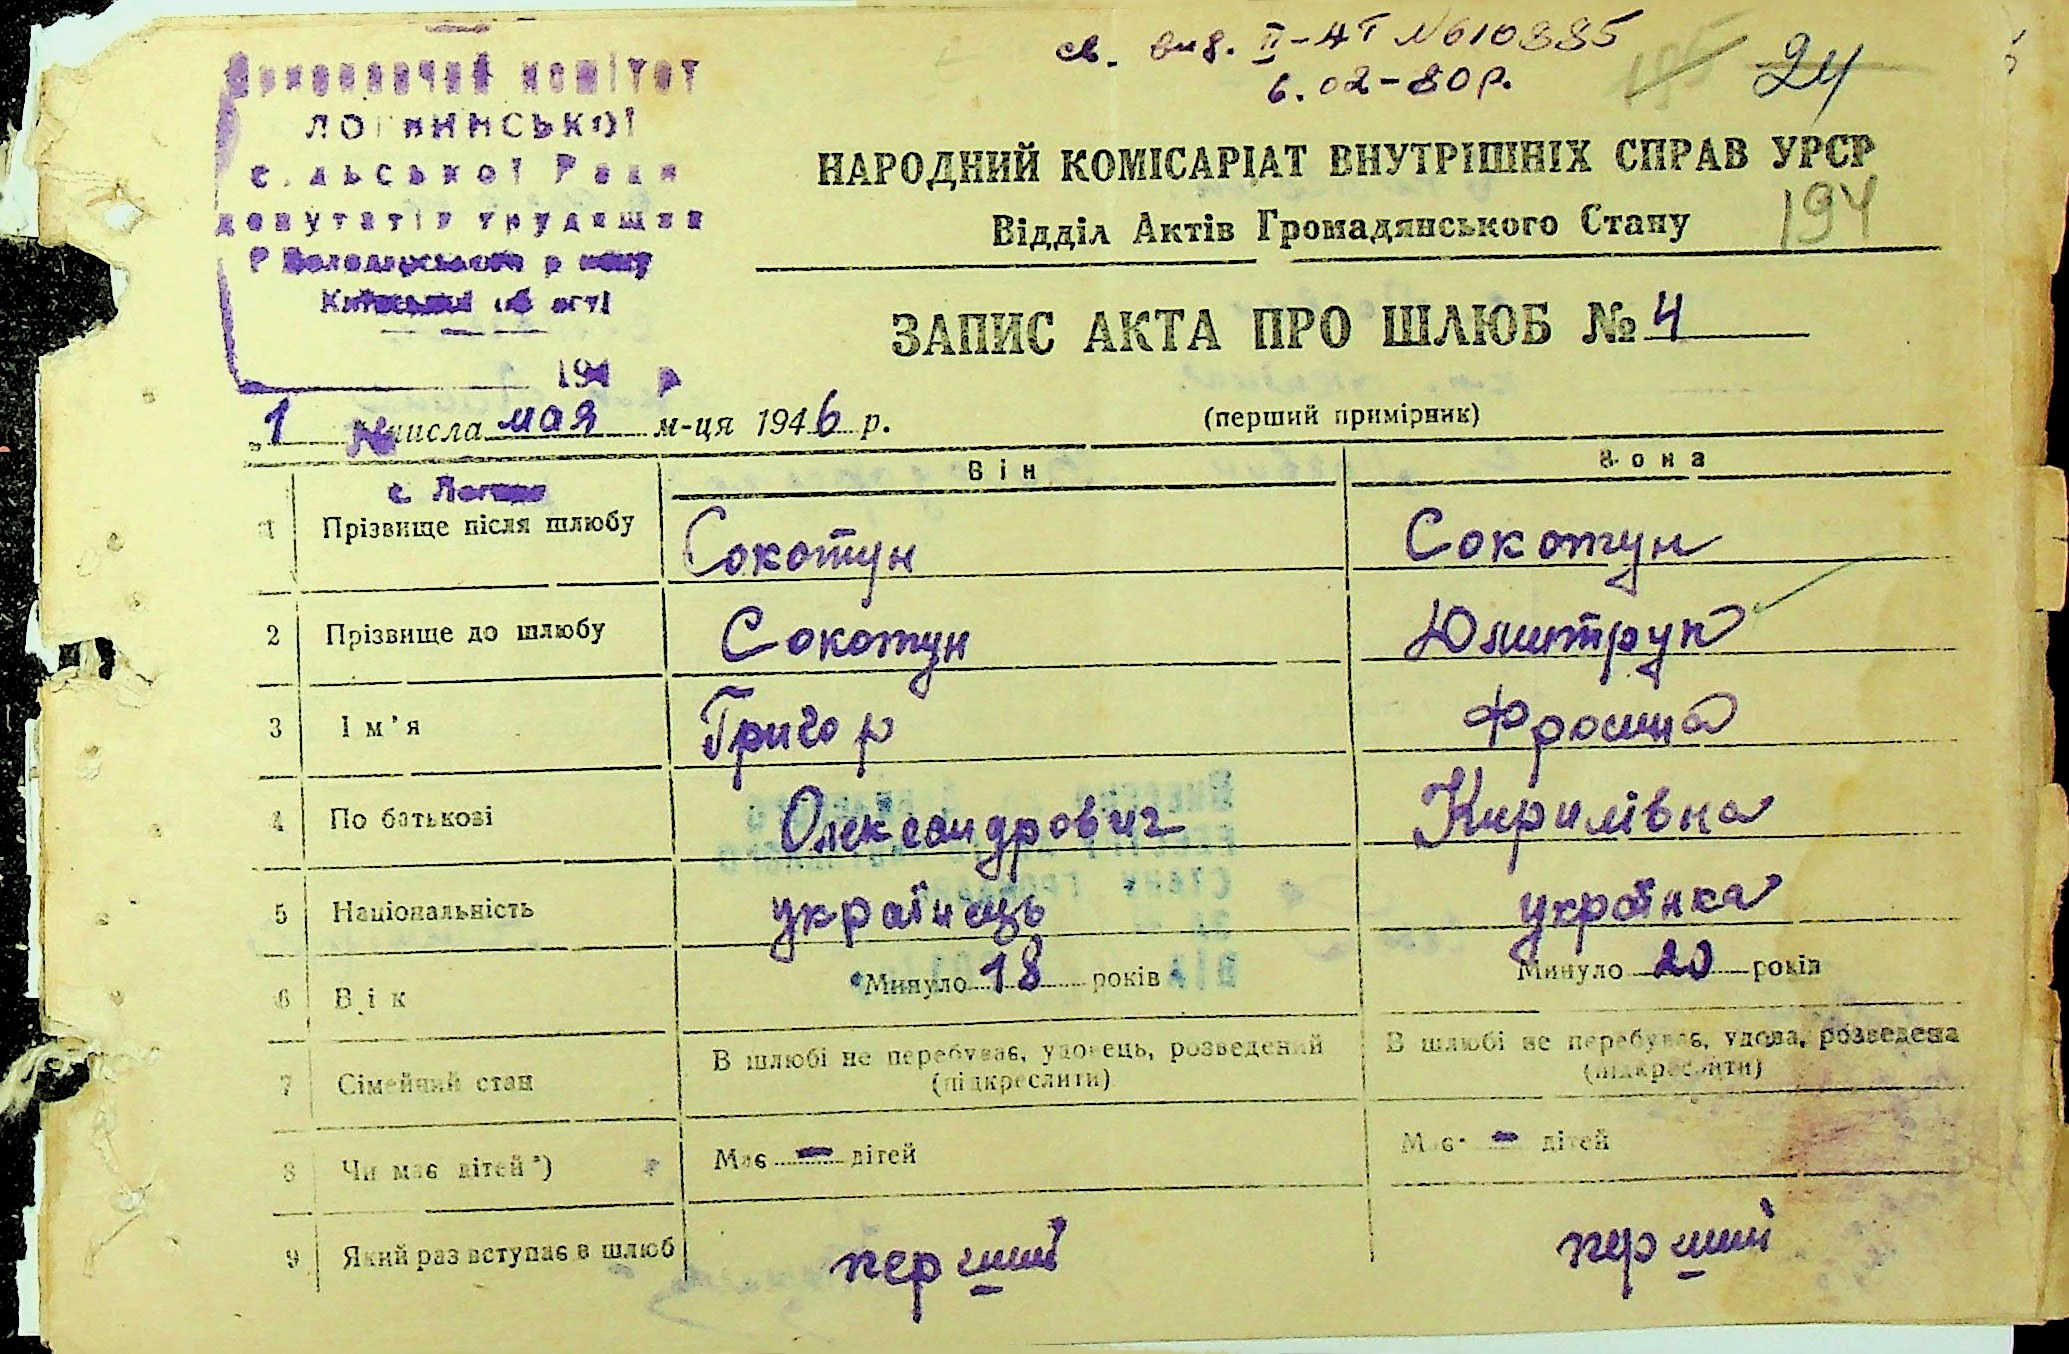 св. вид. II-АТ №610885
6.02-80р.
195 24
Виконавчий комітет
ЛОГВИНСЬКОЇ
сільської Ради
депутатів трудящих
Володарського р-ну
Київської області
194 р
НАРОДНИЙ КОМІСАРІАТ ВНУТРІШНІХ СПРАВ УРСР
Відділ Актів Громадянського Стану
194
ЗАПИС АКТА ПРО ШЛЮБ № 4
„1 числа мая м-ця 1946 р.
(перший примірник)
Він Вона
с. Логвин
1 Прізвище після шлюбу Сокотун Сокотун
2 Прізвище до шлюбу Сокотун Дмитрук
3 Ім'я Григор Фросина
4 По батькові Олександрович Кирилівна
5 Національність українець українка
6 Вік Минуло 18 років Минуло 20 років
7 Сімейний стан В шлюбі не перебуває, удовець, розведений (підкреслити) В шлюбі не перебуває, удова, розведена (підкреслити)
8 Чи має дітей*) Має - дітей Має - дітей
9 Який раз вступає в шлюб перший перший